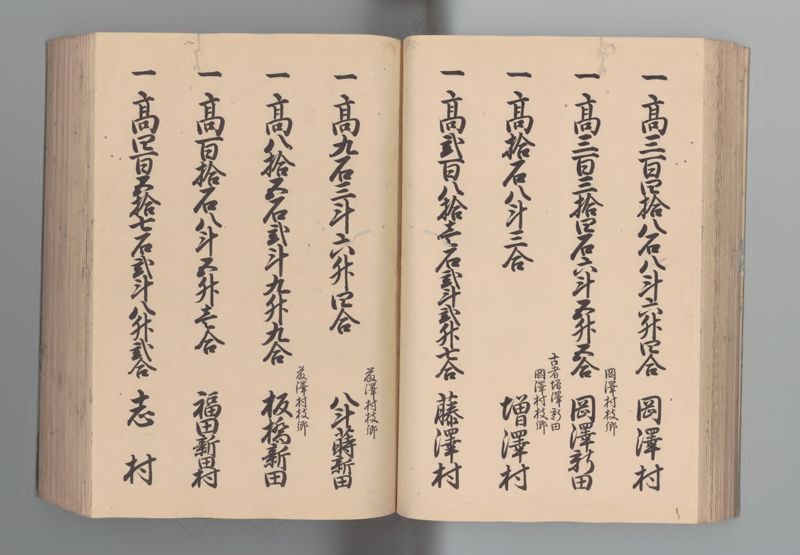 一 高三百四拾八石八斗六升四合 岡澤村
岡澤村枝郷
一 高三百三拾四石六斗五升五合 岡澤新田
古者増澤新田
岡澤村枝郷
一 高拾石八斗三合 増澤村
一 高弐百八拾壱石弐斗弐升七合 藤澤村
藤澤村枝郷
一 高九石三斗六升四合 八斗蒔新田
藤澤村枝郷
一 高八拾五石弐斗九升九合 板橋新田
一 高百拾石八斗五升壱合 福田新田村
一 高四百五拾七石弐斗八升弐合 志村